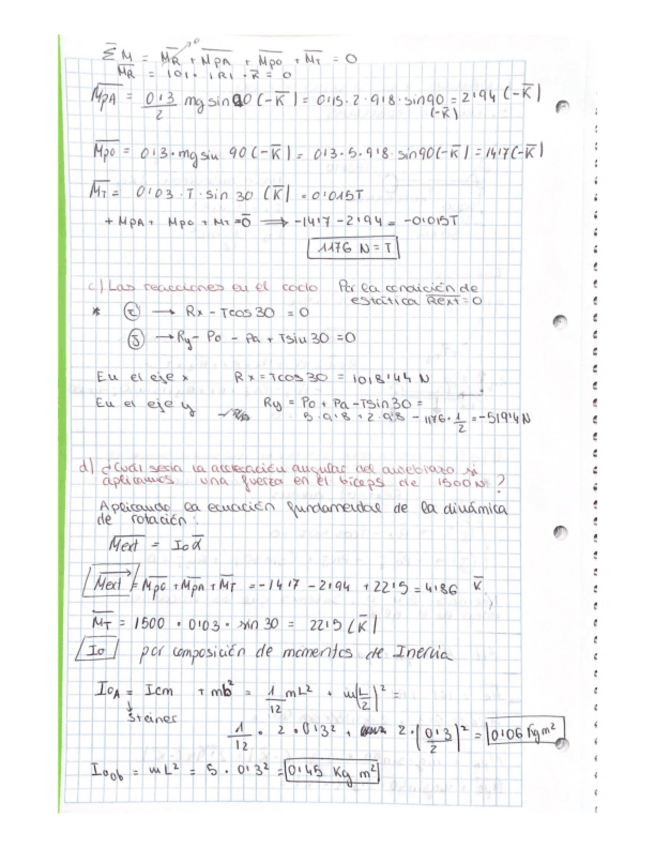 ΣM̄ = M̄R + M̄PA + M̄PO + M̄T = 0
M̄R = |0| · |R| · R̄ = 0
M̄PA = 0'3/2 mg sin90 (-K̄) = 0'15·2·9'8·sin90 = 2'94 (-K̄)
(-K̄)
M̄PO = 0'3·mg sin 90 (-K̄) = 0'3·5·9'8·sin90(-K̄) = 14'7(-K̄)
M̄T = 0'03·T·sin 30 (K̄) = 0'015T
+ MPA + MPO + MT = 0̄ ⟹ -14'7 - 2'94 = -0'015T
1176 N = T
c) Las reacciones en el codo Por la condición de
estática R̄ext = 0
* (i) → Rx - Tcos30 = 0
(j) → Ry - Po - Pa + Tsin30 = 0
En el eje x Rx = Tcos30 = 1018'44 N
En el eje y Ry = Po + Pa - Tsin30 =
5·9'8 + 2·9'8 - 1176·1/2 = -519'4N
d) ¿Cuál sería la aceleración angular del antebrazo si
aplicamos una fuerza en el bíceps de 1500N?
Aplicando la ecuación fundamental de la dinámica
de rotación:
M̄ext = Io ᾱ
M̄ext = M̄PO + M̄PA + M̄T = -14'7 - 2'94 + 22'5 = 4'86 K̄
M̄T = 1500 · 0'03 · sin 30 = 22'5 (K̄)
Io por composición de momentos de Inercia
IOA = Icm + mb² = 1/12 mL² + m(L/2)² =
↓
Steiner
1/12 · 2 · 0'3² + 2·(0'3/2)² = 0'06 Kgm²
IOob = mL² = 5 · 0'3² = 0'45 Kg m²